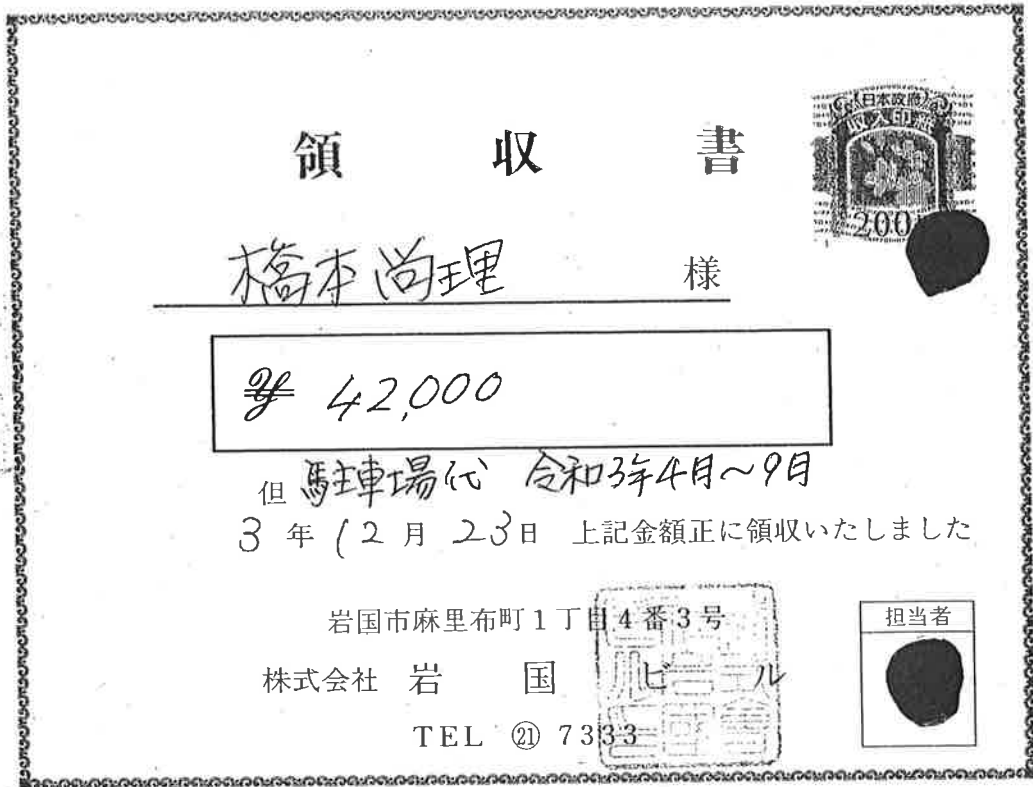 日本政府
収入印紙
200
領収書
橋本尚理 様
¥ 42,000
但 駐車場代 令和3年4月〜9月
3年12月23日 上記金額正に領収いたしました
岩国市麻里布町1丁目4番3号
株式会社 岩国ビル
TEL ㉑ 7333
担当者